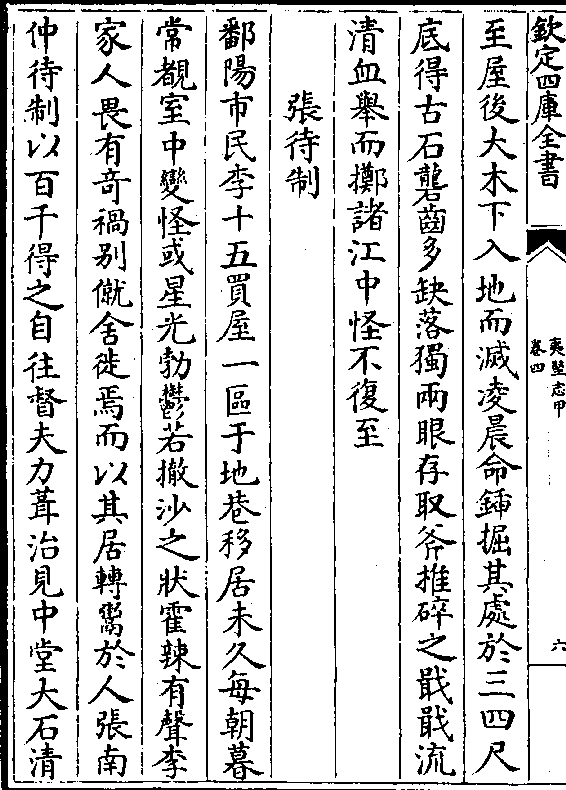 欽定四庫全書
夷堅志甲
卷四
六
至屋後大木下入地而滅凌晨命鍤掘其處於三四尺
底得古石礱齒多缺落獨兩眼存取斧推碎之戢戢流
清血舉而擲諸江中怪不復至
張待制
鄱陽市民李十五買屋一區于地巷移居未久每朝暮
常覩室中變怪或星光勃鬱若撤沙之狀霍辣有聲李
家人畏有竒禍别僦舍徙焉而以其居轉鬻於人張南
仲待制以百千得之自往督夫力葺治見中堂大石清